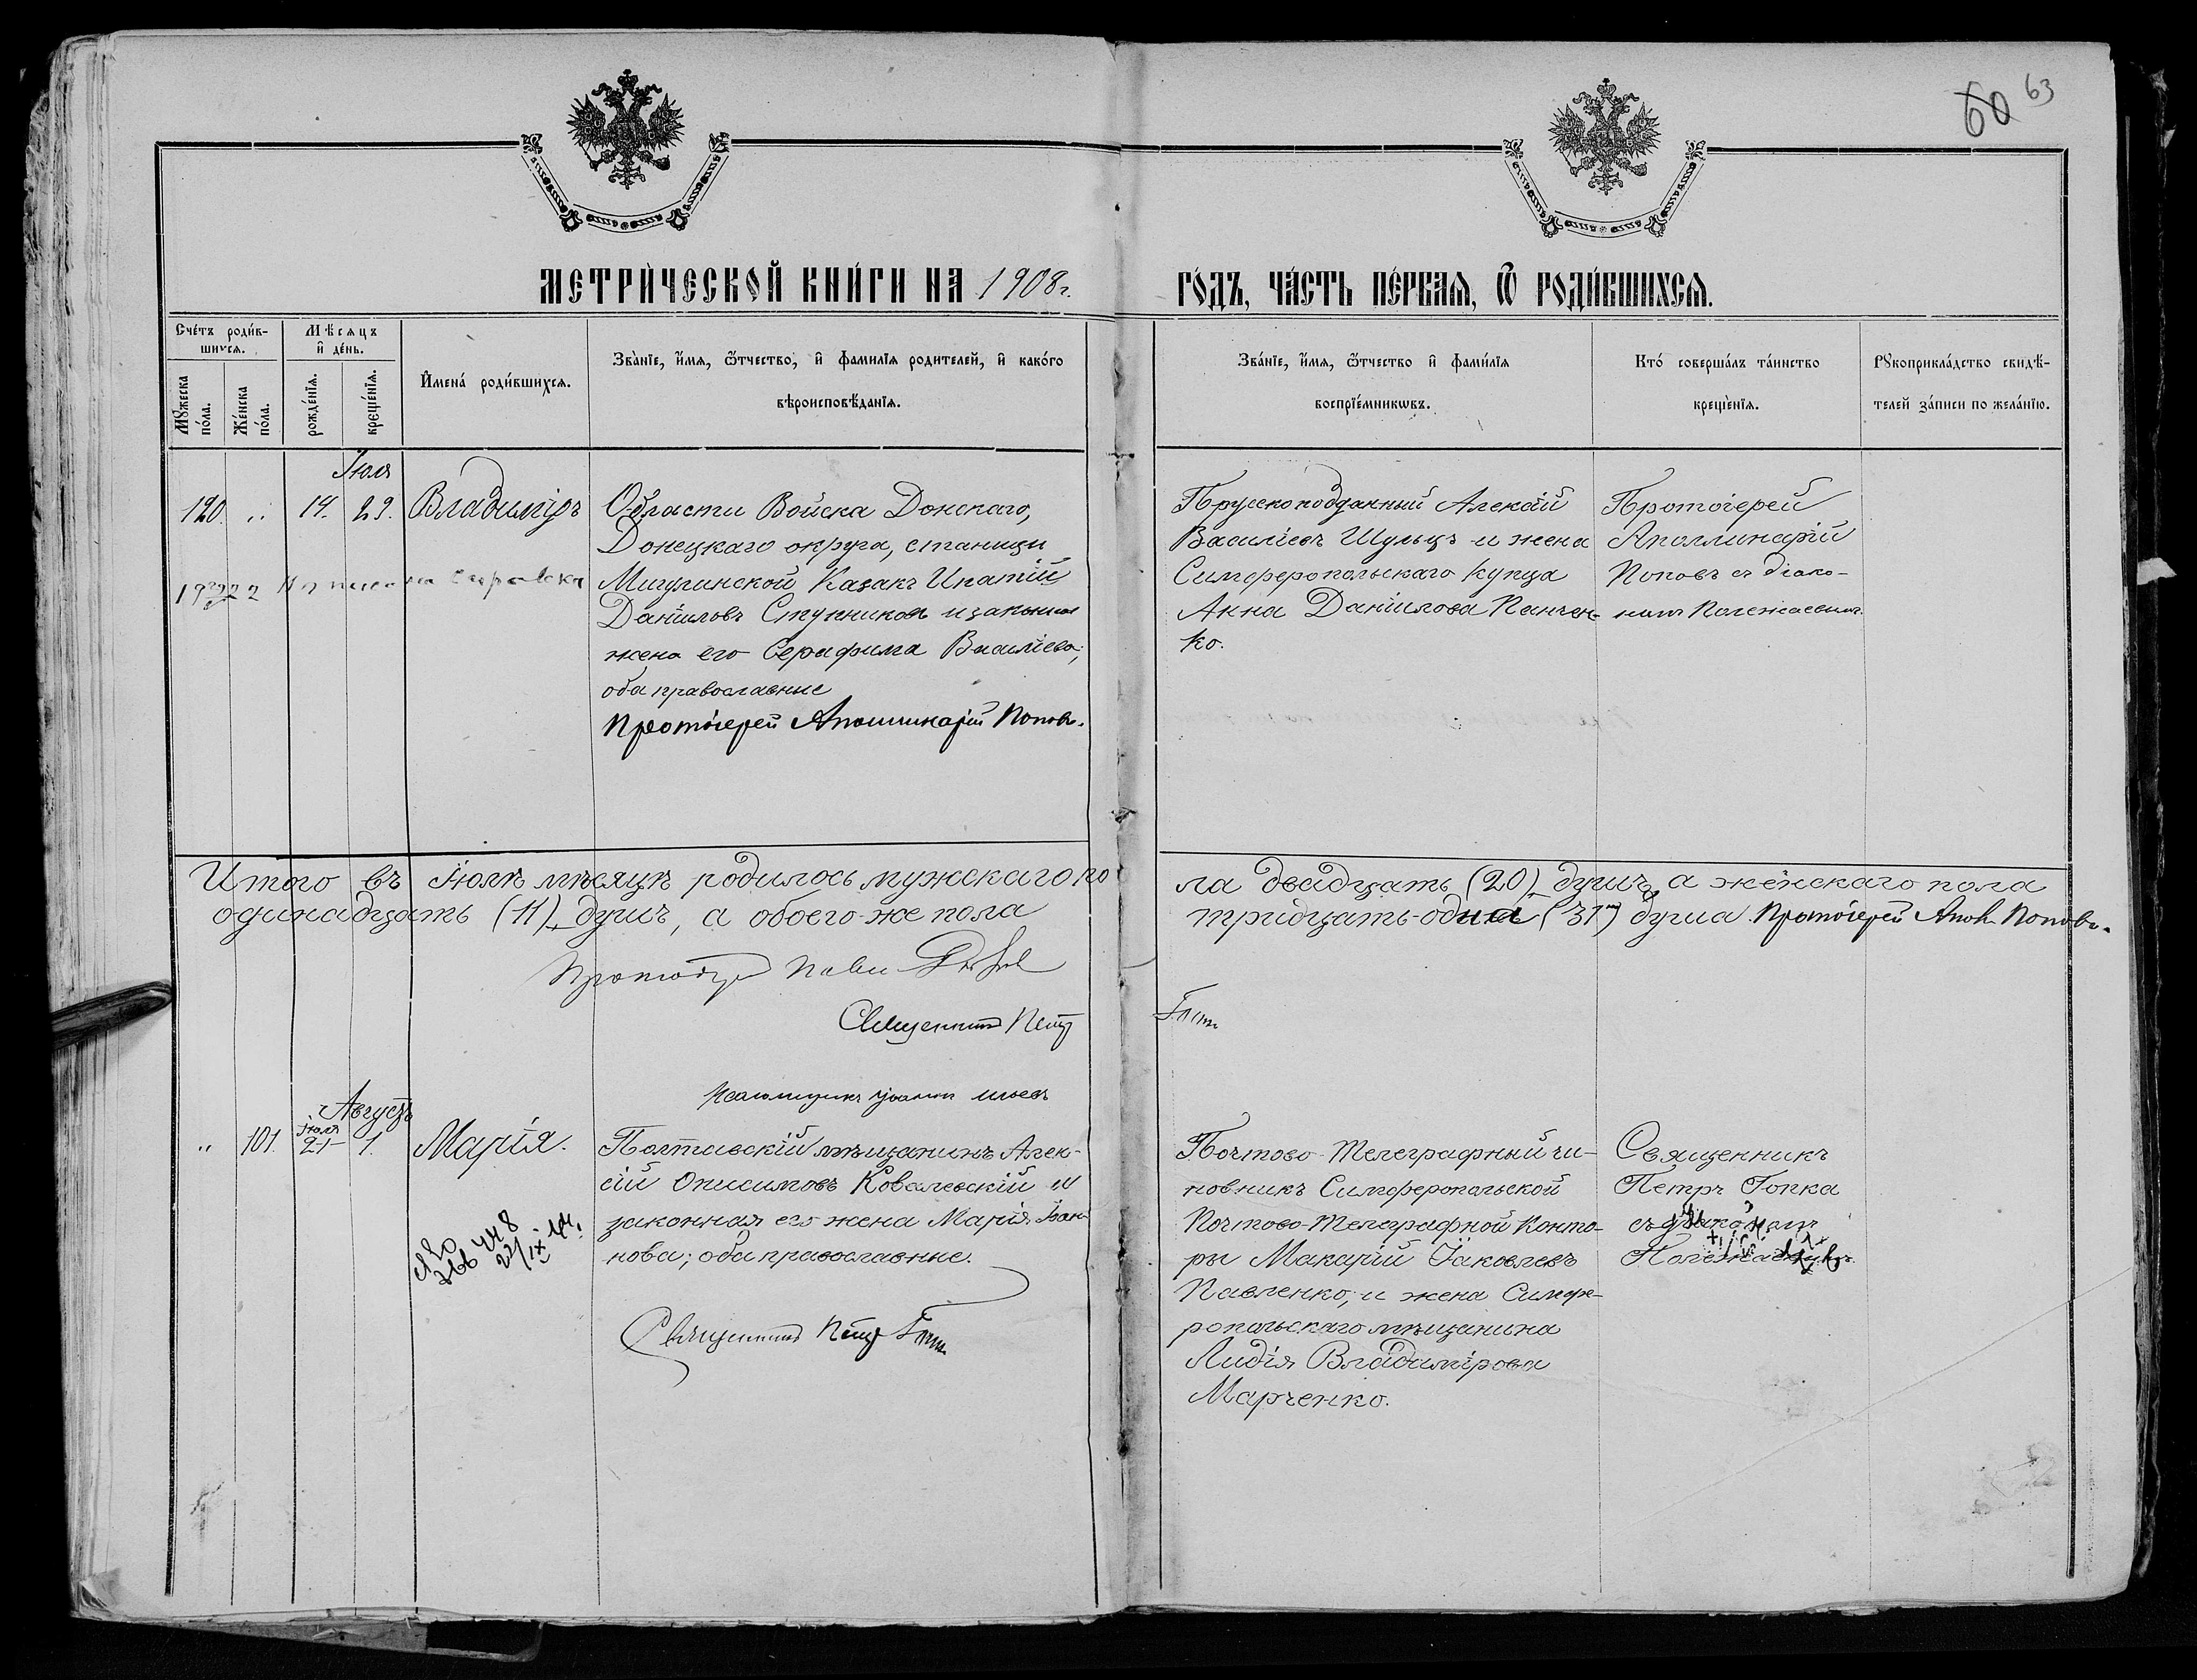 60 63
МЕТРИ́ЧЕСКОЙ КНИ́ГИ НА 1908 г.
ГО́ДЪ, ЧА́СТЬ ПЕ́РВАѦ, Ѿ РОДИ́ВШИХСѦ.
Сче́тъ роди́в-
шихсѧ.
Мꙋжеска по́ла.
Же́нска по́ла.
Мѣ́сяцъ
и҆ де́нь.
рожде́нїѧ.
креще́нїѧ.
И҆мена́ роди́вшихсѧ.
Зва́нїе, и҆́мѧ, ѻ҆́тчество, и҆ фами́лїѧ родителей, и҆ како́го
вѣроисповѣ́данїѧ.
Зва́нїе, и҆́мѧ, ѻ҆́тчество и҆ фами́лїѧ
воспрїе́мникѡвъ.
Кто́ соверша́лъ та́инство
креще́нїѧ.
Рꙋкоприкла́дство свидѣ́-
телей за́писи по жела́нїю.
Іюля
120. „ 14. 29. Владиміръ
Области Войска Донскаго,
Донецкаго округа, станицы
Мигулинской Казакъ Ипатій
Даніиловъ Ступниковъ и законная
жена его Серафима Васильева,
оба православные
Протоіерей Аполлинарій Поповъ.
справка
Прусскоподданный Алексѣй
Василіевъ Шульцъ и жена
Симферопольскаго купца
Анна Даніилова Панчен-
ко.
Протоіерей
Аполлинарій
Поповъ съ діако-
номъ Полежаевымъ.
Итого въ Іюлѣ мѣсяцѣ родилось мужскаго по
ла двадцать (20) душъ, а женскаго пола
одинадцать (11) душъ, а обоего же пола
тридцать одна (31) душа Протоіерей Апол. Поповъ.
Протоіерей
Священникъ Петръ
Гопка
Псаломщикъ Іоаннъ
Августъ
„ 101. Іюля 21 1. Марія.
Полтавскій мѣщанинъ Алек-
сій Онисимовъ Ковалевскій и
законная его жена Марія Іоан-
нова; оба православные.
Священникъ Петръ Гопка
448
22/IX
Почтово-Телеграфный чи-
новникъ Симферопольской
Почтово-Телеграфной Конто-
ры Макарій Іаковлевъ
Павленко, и жена Симфе-
ропольскаго мѣщанина
Лидія Владимірова
Марченко.
Священникъ
Петръ Гопка
съ діакономъ